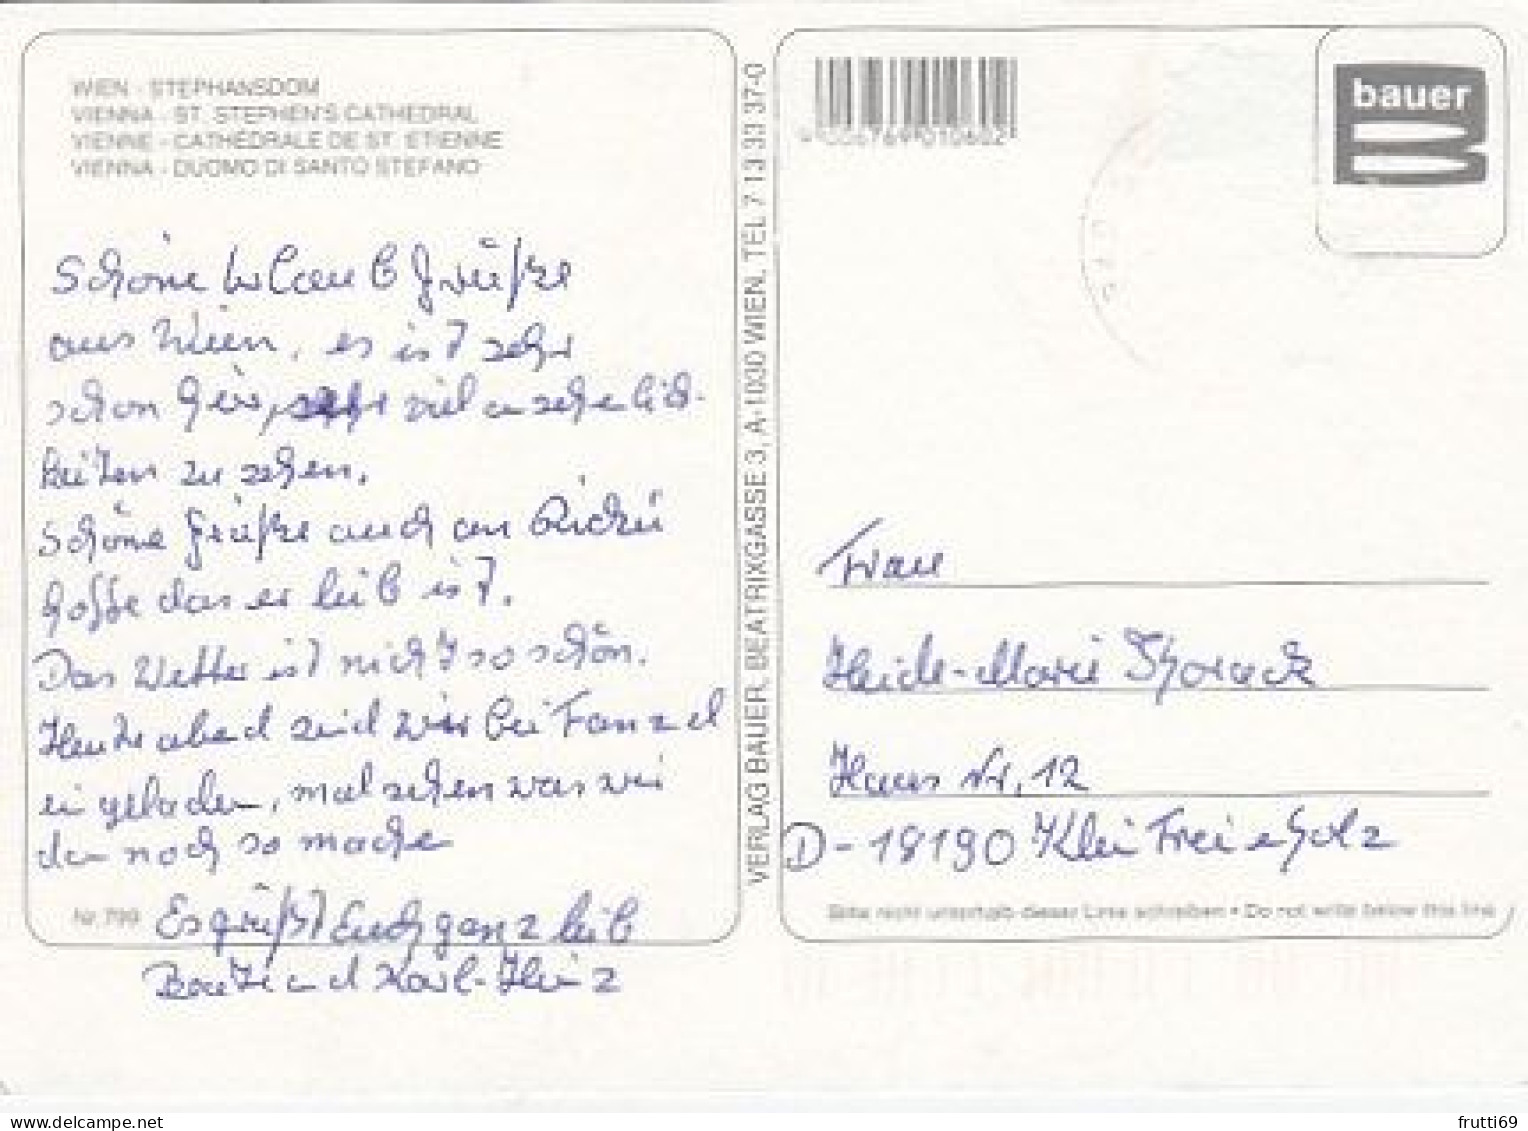 WIEN - STEPHANSDOM
VIENNA - ST. STEPHEN'S CATHEDRAL
VIENNE - CATHÉDRALE DE ST. ETIENNE
VIENNA - DUOMO DI SANTO STEFANO
Schöne Urlaub Grüße
aus Wien, es ist sehr
schön hier, viel an sehenlich-
keiten zu sehen.
Schöne Grüße auch an
hoffe das er lieb ist.
Das Wetter ist nicht so schön.
Heute abend sind wir bei Fam
eingeladen, mal sehen was wir
da noch so machen
Es grüßt Euch ganz lieb
und Karl-Heinz
Nr. 799
VERLAG BAUER, BEATRIXGASSE 3, A-1030 WIEN, TEL 7 13 33 37-0
9 006769 010602
bauer
Frau
Heide-Marie
Haus Nr. 12
D-18190 Klein Freienholz
Bitte nicht unterhalb dieser Linie schreiben • Do not write below this line
frutti69